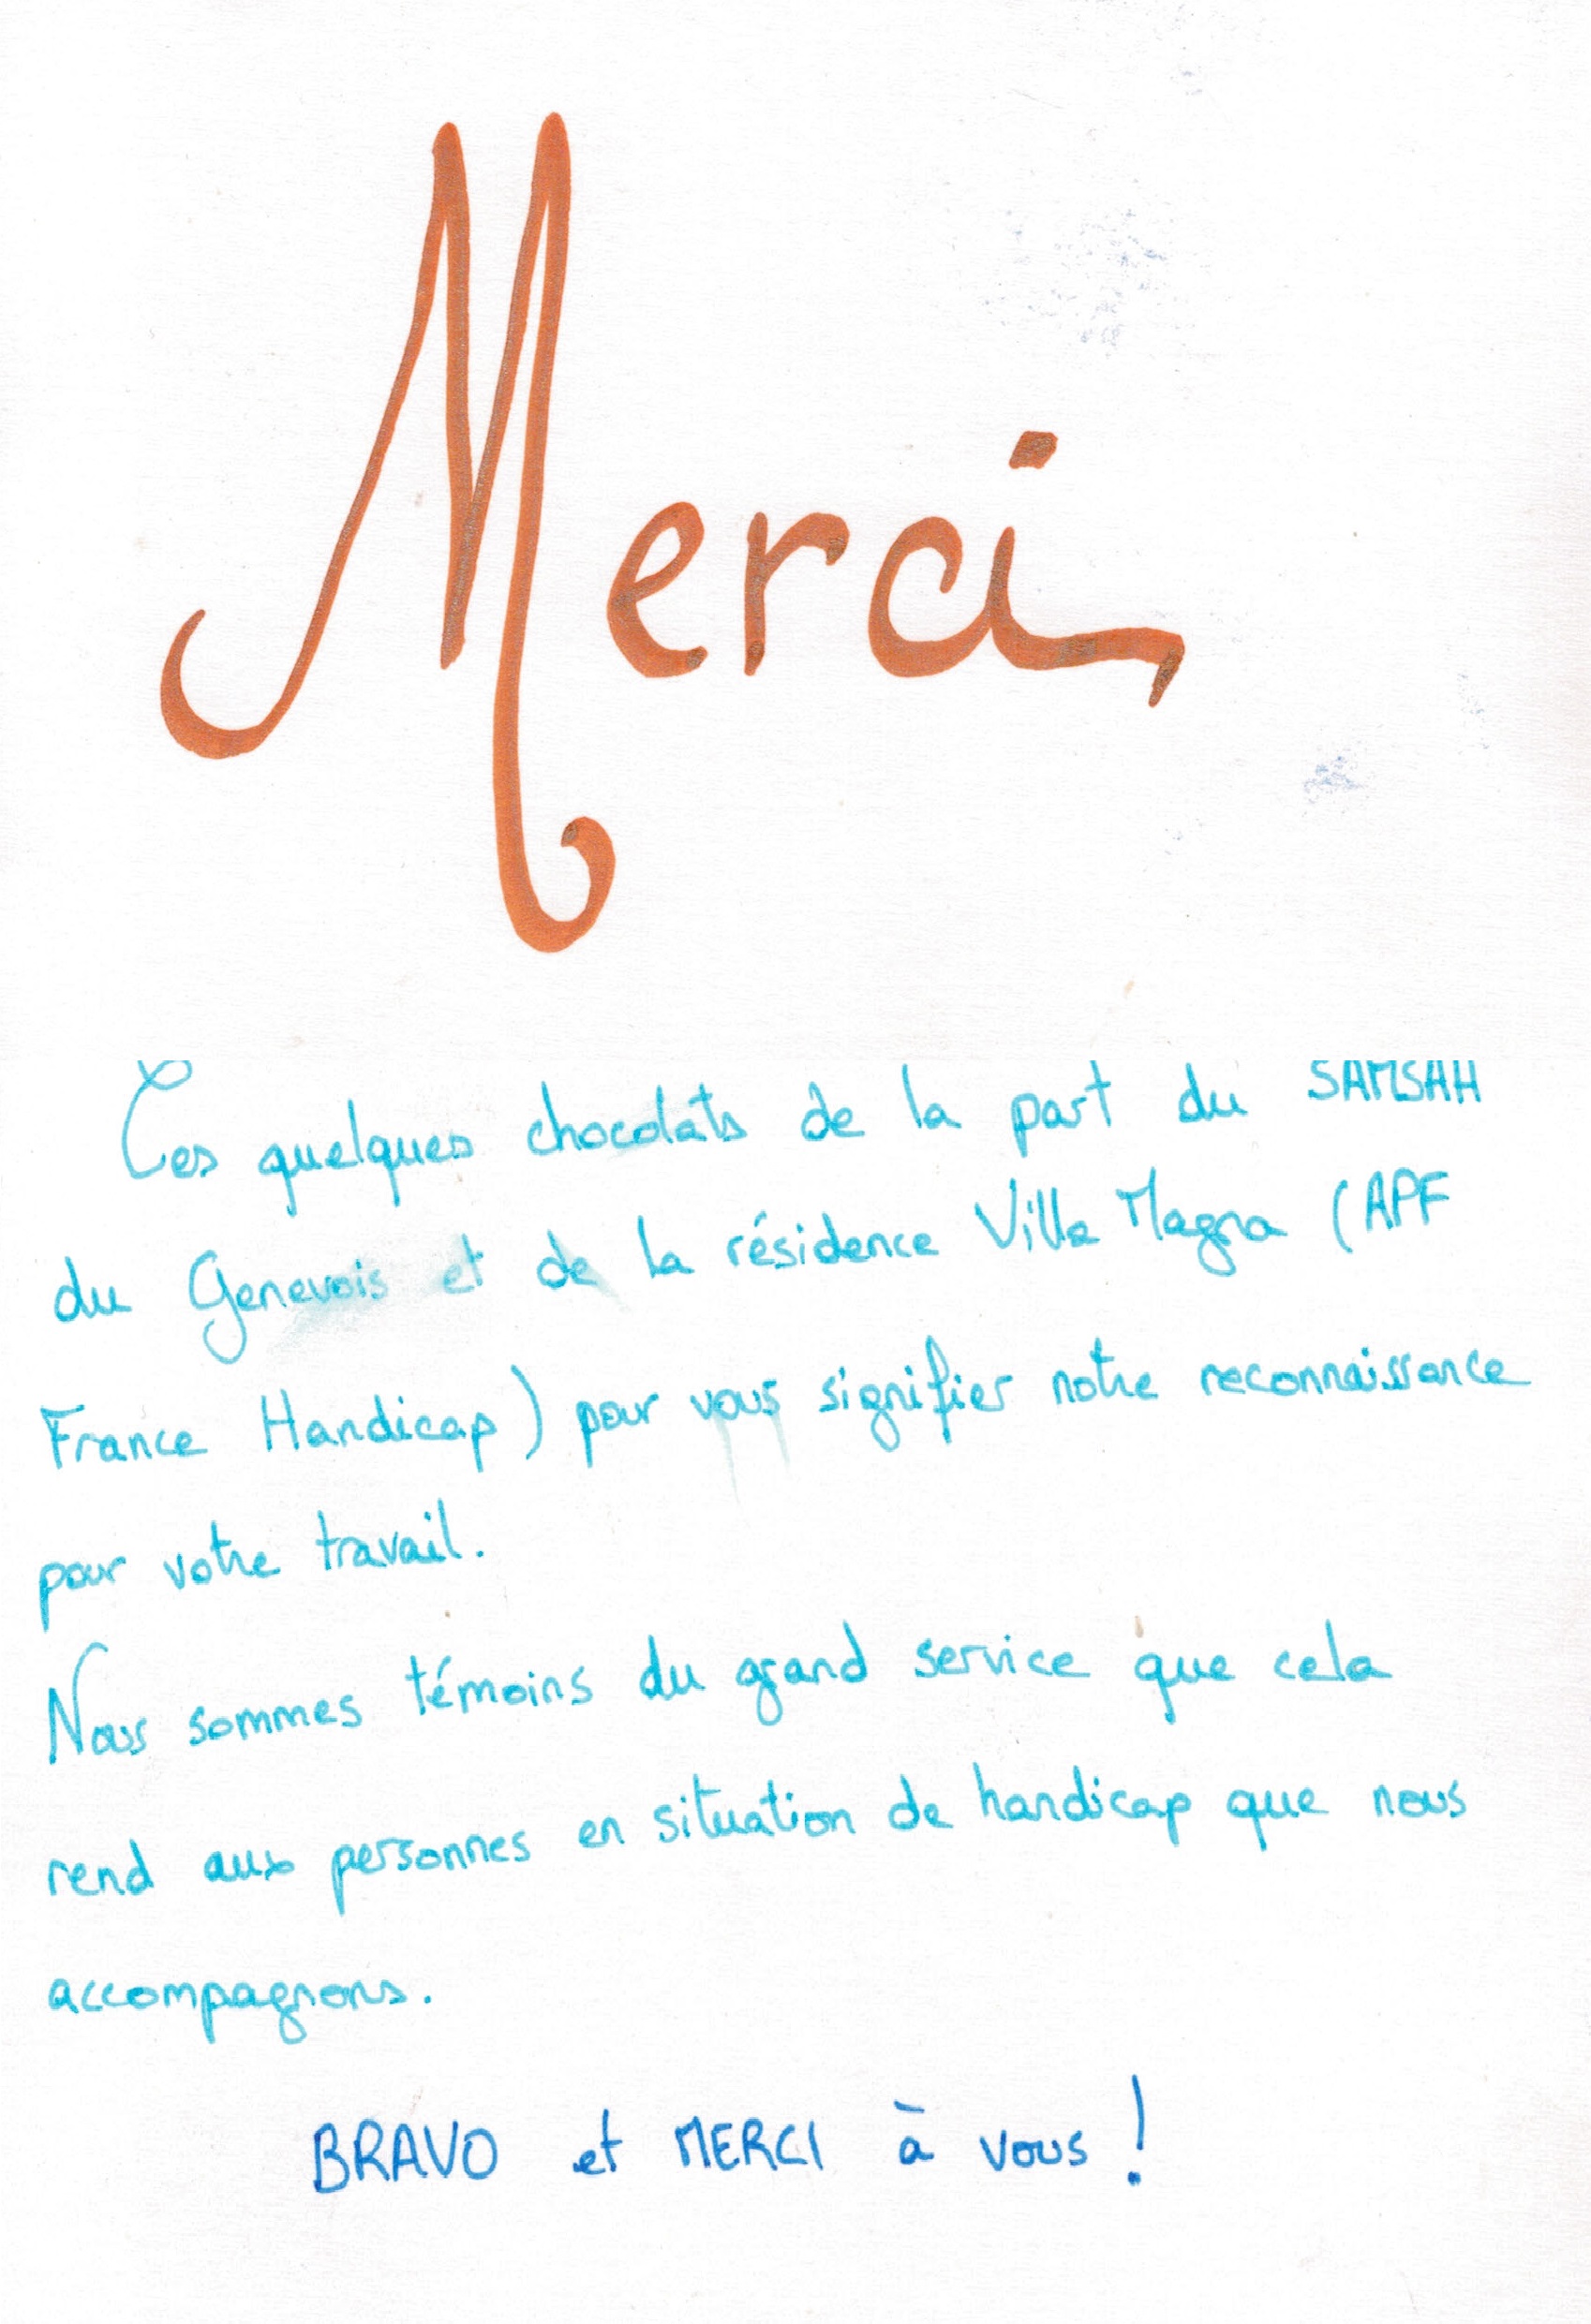 Merci
Ces quelques chocolats de la part du SAMSAH
du Genevois et de la résidence Villa Magna (APF
France Handicap) pour vous signifier notre reconnaissance
pour votre travail.
Nous sommes témoins du grand service que cela
rend aux personnes en situation de handicap que nous
accompagnons.
BRAVO et MERCI à vous !